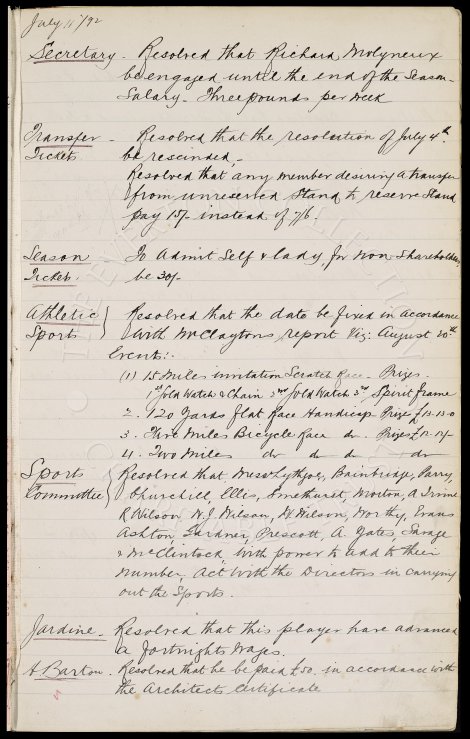 July 11th/92
Secretary - Resolved that Richard Molyneux
be engaged until the end of the Season -
Salary - Three pounds per week
Transfer Tickets - Resolved that the resolution of July 4th
be rescinded -
Resolved that any member desiring a transfer
from unreserved Stand to reserve Stand
pay 15/- instead of 7/6.
Season Tickets. To Admit Self & lady, for non Shareholders,
be 30/-
Athletic Sports } Resolved that the date be fixed in accordance
with Mr Claytons report Viz: August 20th
Events:-
(1) 15 Miles invitation Scratch Race - Prizes -
1st Gold Watch & Chain 2nd Gold Watch 3rd Spirit Frame
2. 120 Yards Flat Race Handicap - Prizes £
3. Three Miles Bicycle Race do. Prizes £
4. Two Miles do do do
Sports Committee } Resolved that Messrs Lythgoe, Bainbridge, Parry,
Churchill, Ellis, Smethurst, Morton, A Irvine
R Wilson, W.J. Wilson, W Wilson, Worthy, Evans
Ashton, Gardner, Prescott, A. Yates, Savage
& McClintock with power to add to their
number, Act with the Directors in carrying
out the Sports.
Jardine - Resolved that this player have advanced
a fortnights wages.
A Barton - Resolved that he be paid £50. in accordance with
the Architects Certificate